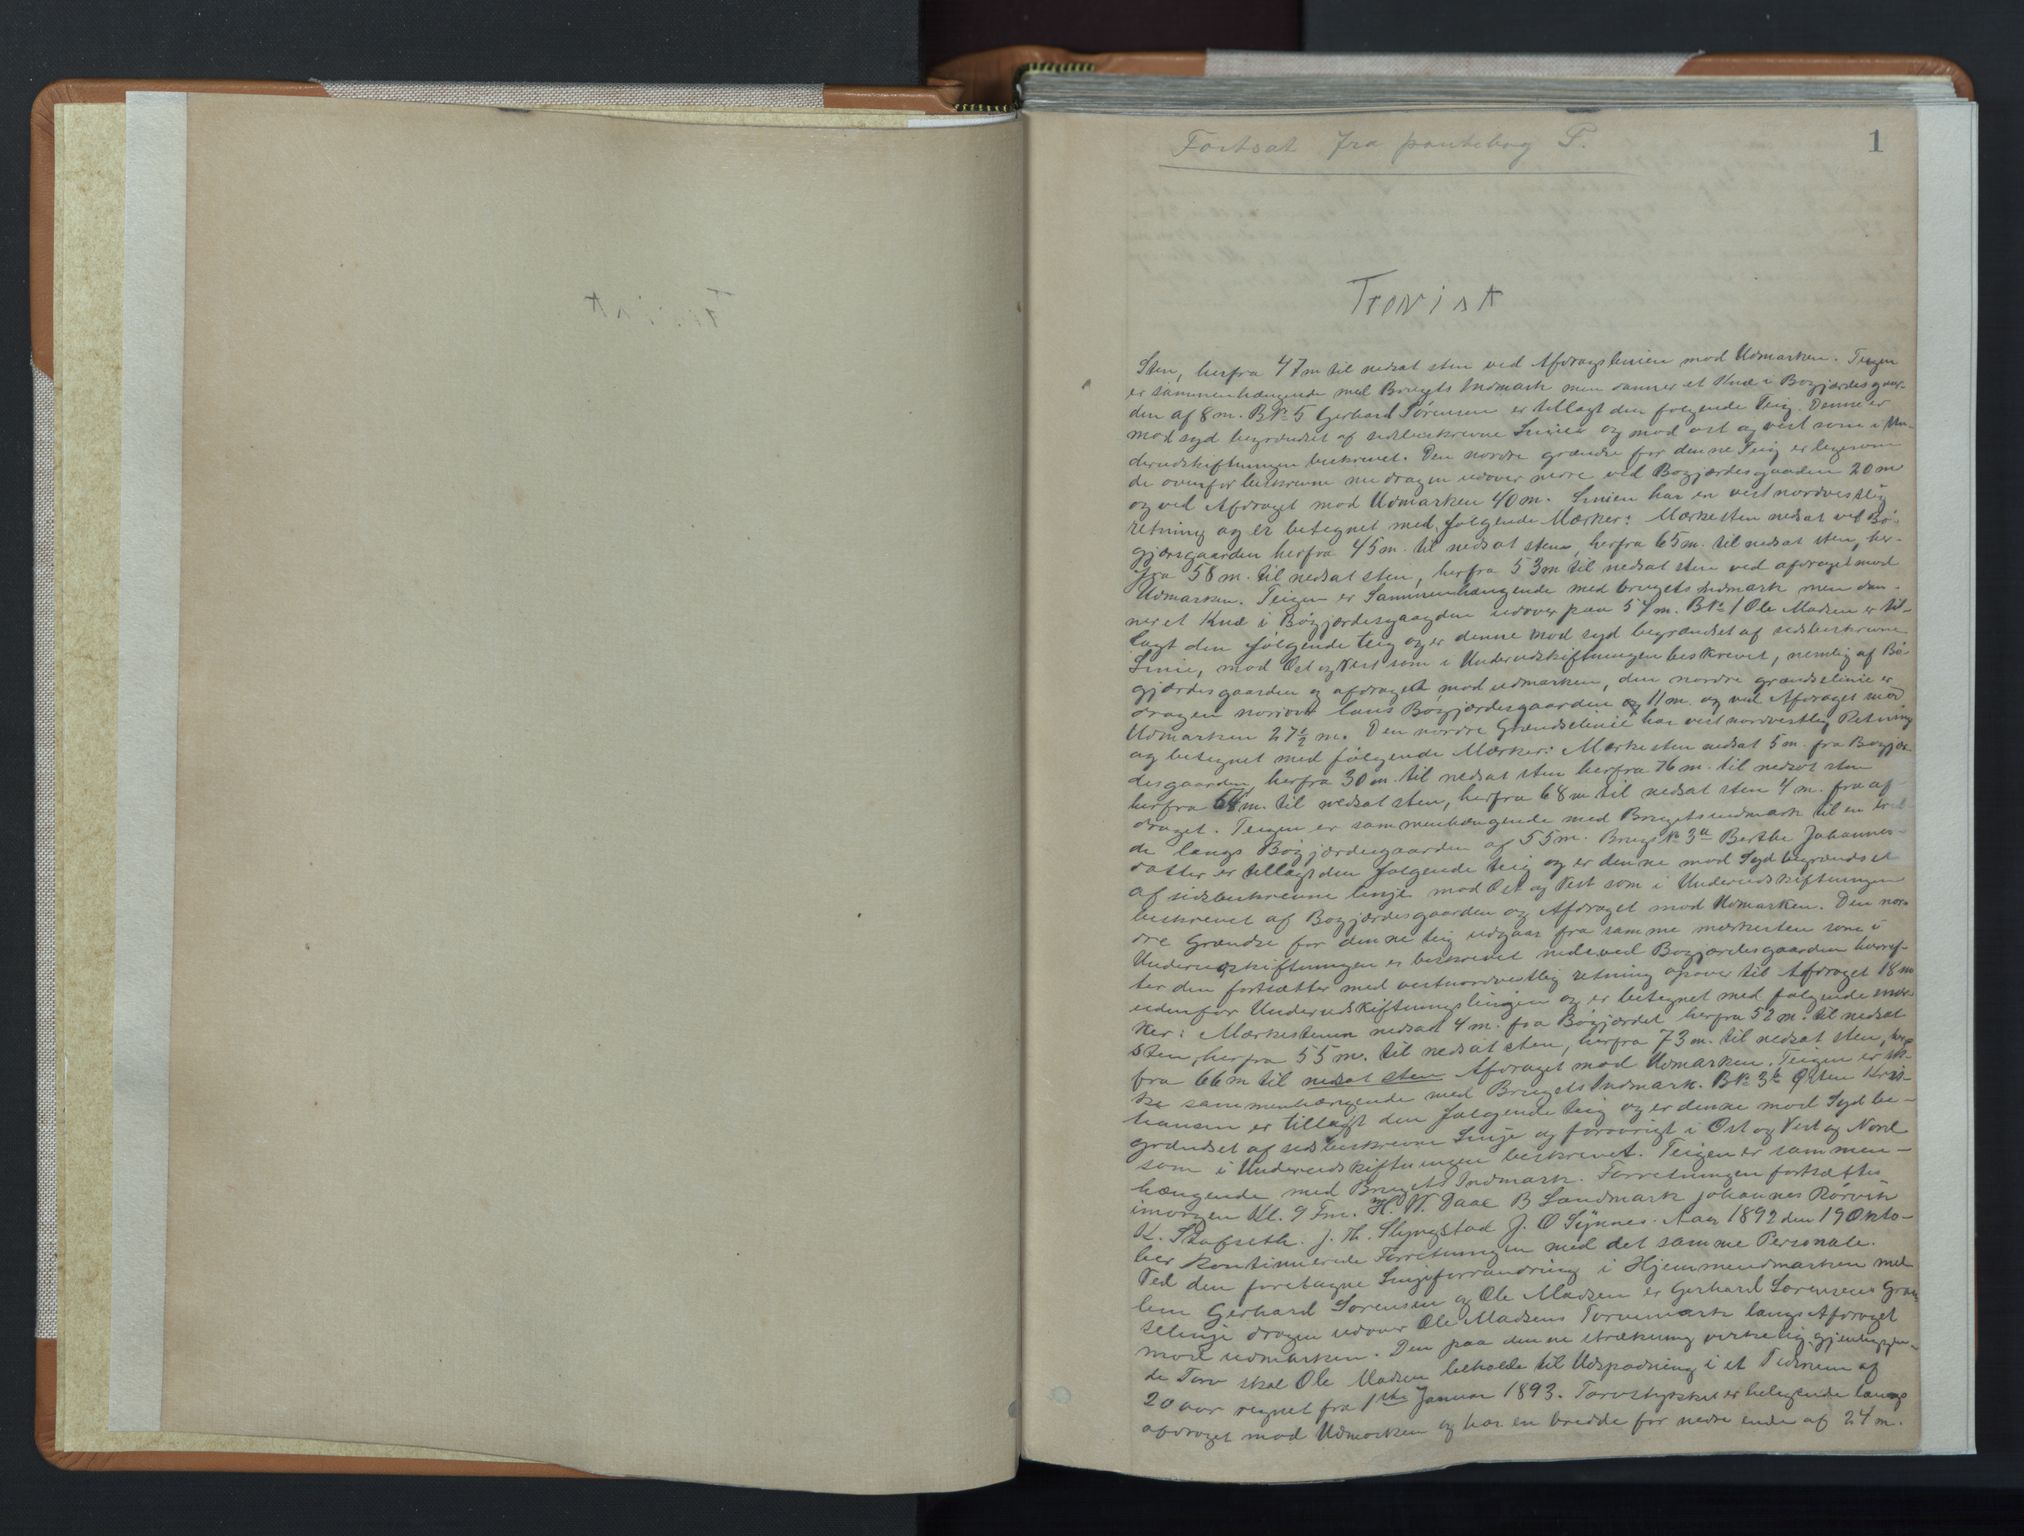 Fortsat fra pantebog T.
1
Sten, herfra 47 m til nedsat sten ved Afdragslinien mod Udmarken. Teigen
er sammenhængende med Brugets Indmark men danner et Knæ i Bøgjærdesgaar-
den af 8 m. B№ 5 Gerhard Sørensen er tillagt den følgende Teig. Denne er
mod syd begrændset af sidstbeskrevne Linie og mod ost og vest som i Un-
derudskiftningen beskrevet. Den nordre grændse for denne Teig er ligesom
de ovenfor beskrevne nu dragen udover nere ved Bøgjærdesgaarden 20 m
og ved Afdraget mod Udmarken 40 m. Linien har en vestnordvestlig
retning og er betegnet med følgende Mærker: Mærkesten nedsat ved Bø-
gjærsgaarden herfra 45 m. til nedsat sten, herfra 65 m. til nedsat sten, her-
fra 58 m. til nedsat sten, herfra 53 m til nedsat sten ved afdraget mod
Udmarken. Teigen er Sammenhængende med brugets Indmark men dan-
ner et Knæ i Bøgjærdesgaarden udover paa 57 m. B№ 1 Ole Madsen er til-
lagt den følgende teig og er denne mod syd begrændset af sidstbeskrevne
Linie, mod Ost og Vest som i Underudskiftningen beskrevet, nemlig af Bø-
gjærdesgaarden og afdraget mod udmarken, den nordre grændselinie er
dragen nordover langs Bøgjærdesgaarden 11 m. og ved Afdraget mod
Udmarken 27 1/2 m. Den nordre Grændselinie har vestnordvestlig Retning
og betegnet med følgende Mærker: Mærkesten nedsat 5 m. fra Bøgjær-
desgaarden, herfra 30 m. til nedsat sten herfra 76 m. til nedsat sten
herfra m. til nedsat sten, herfra 68 m til nedsat sten 4 m. fra af-
draget. Teigen er sammenhængende med Brugets indmark til en bred-
de langs Bøgjærdesgaarden af 55 m. Brugs№ 3a Berthe Johannes-
datter er tillagt den følgende teig og er denne mod Syd begrændset
af sidstbeskrevne linje mod Ost og Vest som i Underudskiftningen
beskrevet af Bøgjærdesgaarden og Afdraget mod Udmarken. Den nor-
dre Grændse for denne teig udgaar fra samme merkesten som i
Underudskiftningen er beskrevet nede ved Bøgjærdesgaarden hvoref-
ter den fortsætter med vestnordvestlig retning opover til Afdraget 18 m
udenfor Underudskiftningslinjen og er betegnet med følgende mær-
ker: Mærkestenen nedsat 4 m. fra Bøgjærdet herfra 52 m. til nedsat
sten, herfra 55 m. til nedsat sten, herfra 73 m. til nedsat sten, her-
fra 66 m til nedsat sten Afdraget mod Udmarken. Teigen er ik-
ke sammenhængende med Brugets Indmark. B№ 3b Kris-
tiansen er tillagt den følgende teig og er denne mod Syd be-
grændset af sidstbeskrevne Linje og forøvrigt i Ost og Vest og Nord
som i Underudskiftningen beskrevet. Teigen er sammen-
hængende med Brugets Indmark. Forretningen fortsættes
imorgen Kl. 9 Fm. H. W. Daae B Landmark Johannes Rørvik
K. Stafseth. J. Th. Slyngstad J. O Synnes. Aar 1892 den 19 Okto-
ber kontinuerede Forretningen med det samme Personale.
Ved den foretagne Linjeforandring i Hjemmeudmarken mel-
lem Gerhard Sørensen og Ole Madsen er Gerhard Sørensens Græn-
selinje dragen udover Ole Madsens Torvemark langs Afdraget
mod udmarken. Den paa denne strækning gjenliggen-
de Torv skal Ole Madsen beholde til Udspadning i et Tidsrum af
20 aar regnet fra 1ste Januar 1893. Torvstykket er beligende langs
afdraget mod Udmarken og har en bredde for nedre ende af 24 m.